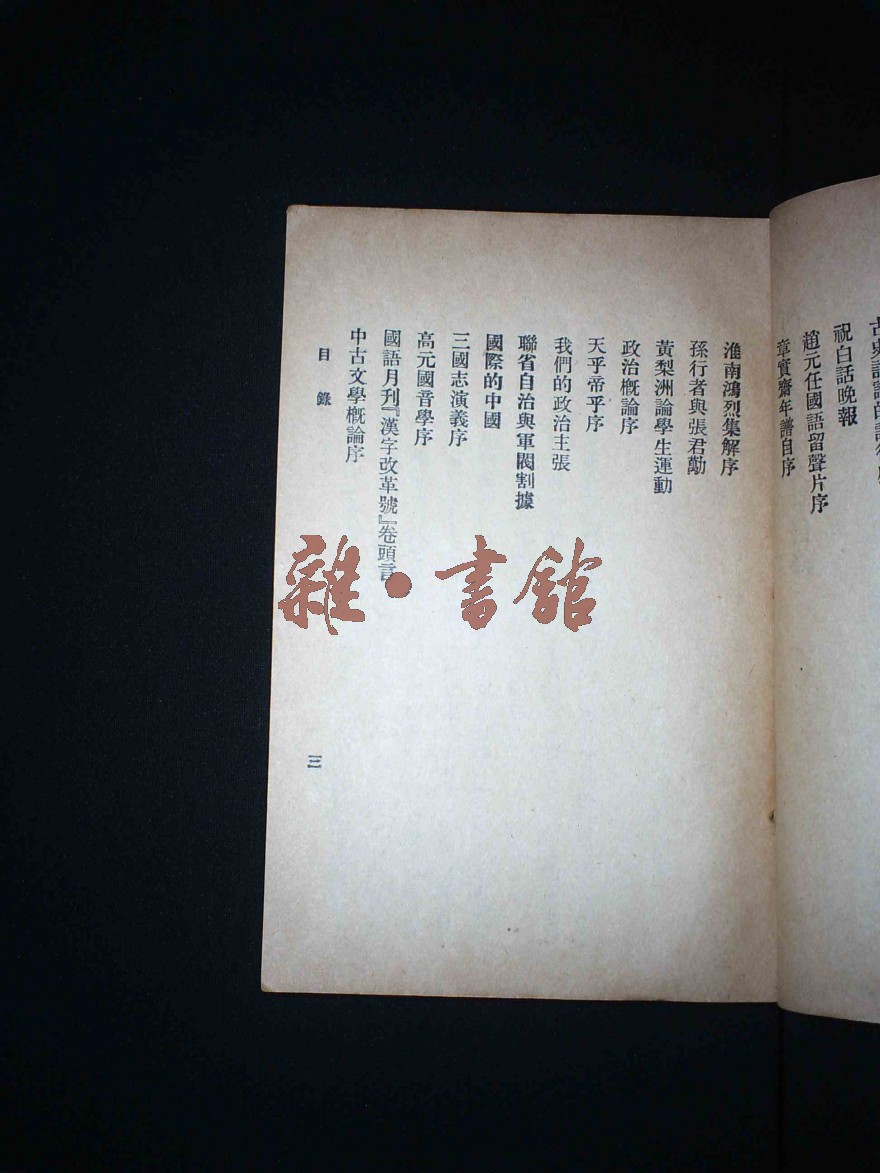 祝白話晚報
趙元任國語留聲片序
章實齋年譜自序
淮南鴻烈集解序
孫行者與張君勱
黃梨洲論學生運動
政治概論序
天乎帝乎序
我們的政治主張
聯省自治與軍閥割據
國際的中國
三國志演義序
高元國音學序
國語月刊『漢字改革號』卷頭言
中古文學概論序
目錄
三
雜·書館